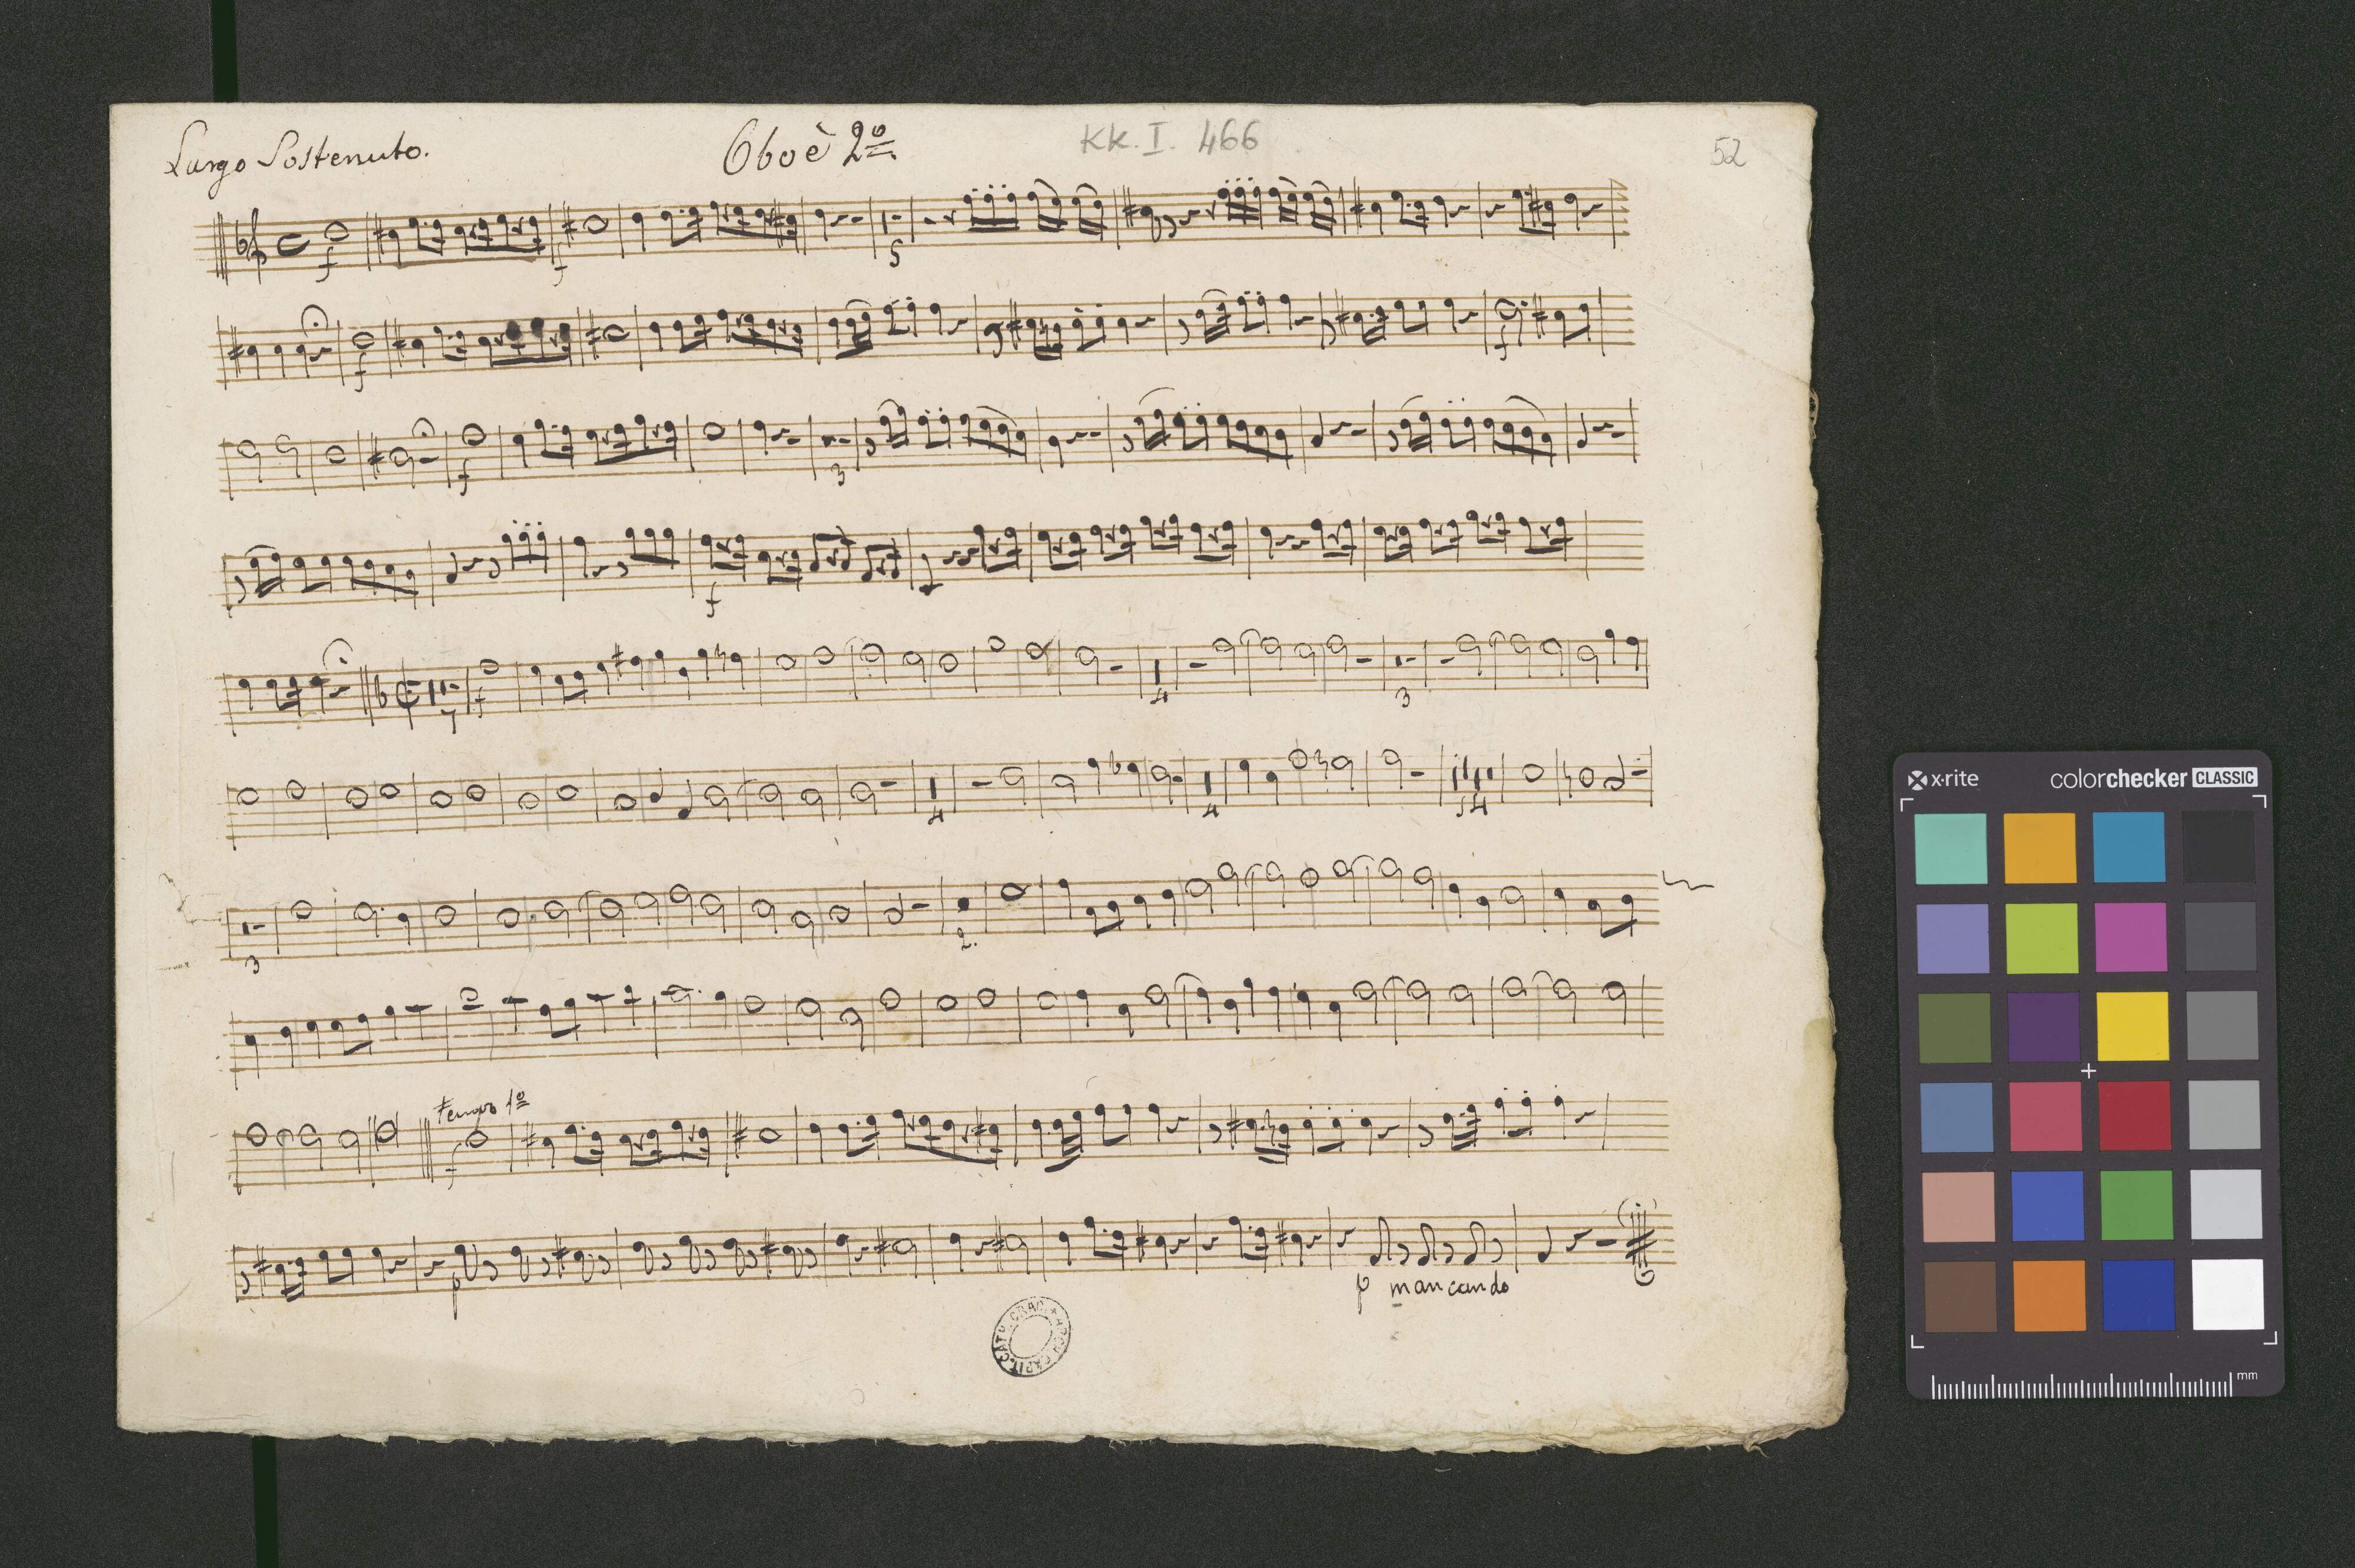 Largo Sostenuto.
Oboè 2º
KK. I. 466
52
f
f
5
f
f
f
3
f
7
f
4
3
4
4
3
2.
Tempo 1º
f
p
p mancando
x-rite
colorchecker CLASSIC
mm